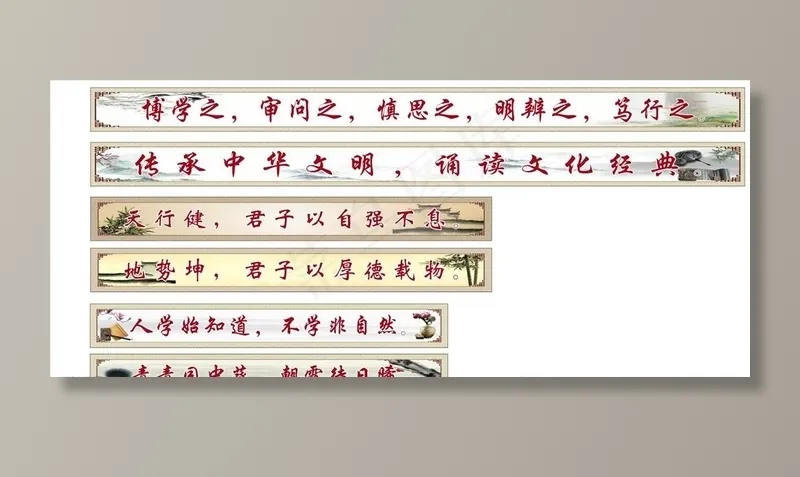 博学之，审问之，慎思之，明辨之，笃行之。
传承中华文明，诵读文化经典。
天行健，君子以自强不息。
地势坤，君子以厚德载物。
人学始知道，不学非自然。
青青园中葵，朝露待日晞